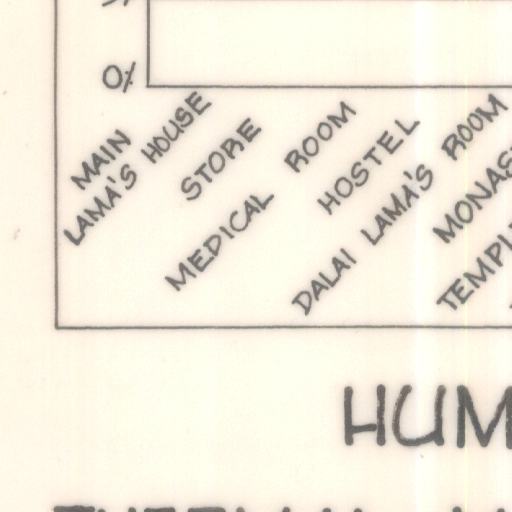 0%
MAIN
LAMA'S HOUSE
STORE
MEDICAL ROOM
HOSTEL
DALAI LAMA'S ROOM